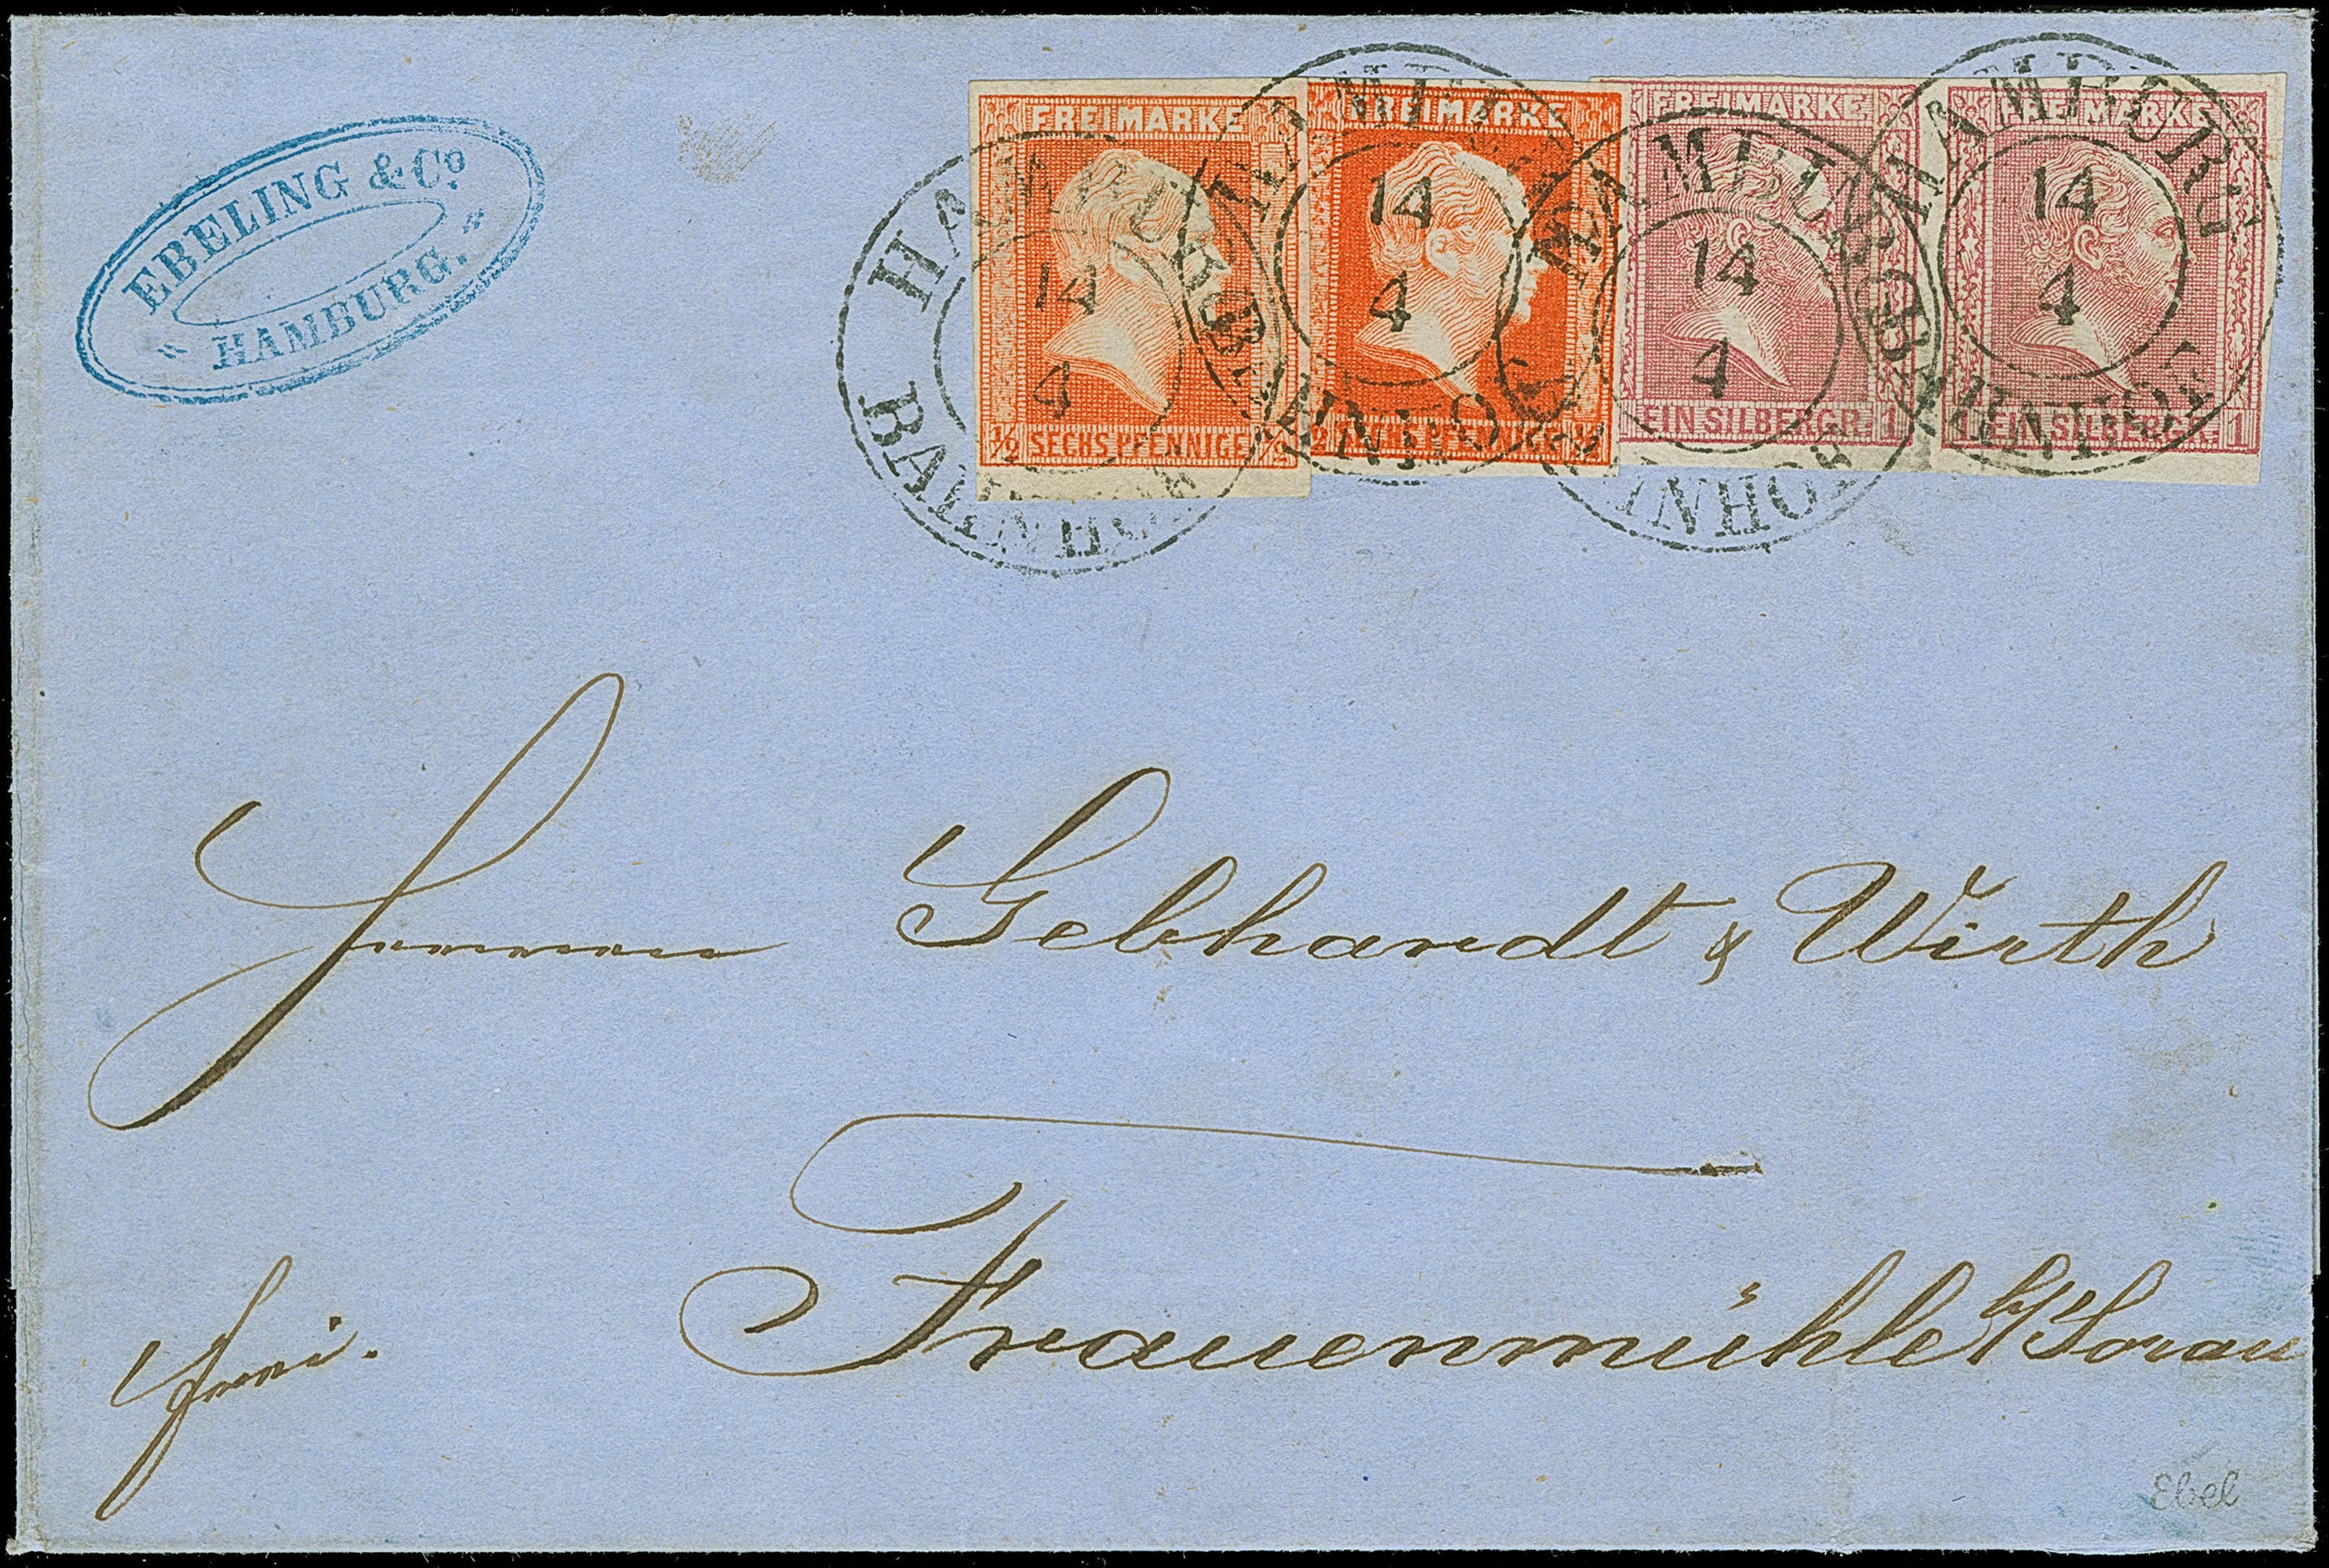 EBELING & Co.
" HAMBURG. "
FREIMARKE
½ SECHS PFENNIGE ½
FREIMARKE
½ SECHS PFENNIGE ½
FREIMARKE
EIN SILBERGR. 1
FREIMARKE
EIN SILBERGR. 1
HAMBURG
14
4
BAHNHOF
HAMBURG
14
4
BAHNHOF
HAMBURG
14
4
BAHNHOF
HAMBURG
14
4
BAHNHOF
Herren Gebhardt & Wirth
Frauenmühle b/Sorau
frei.
Ebel